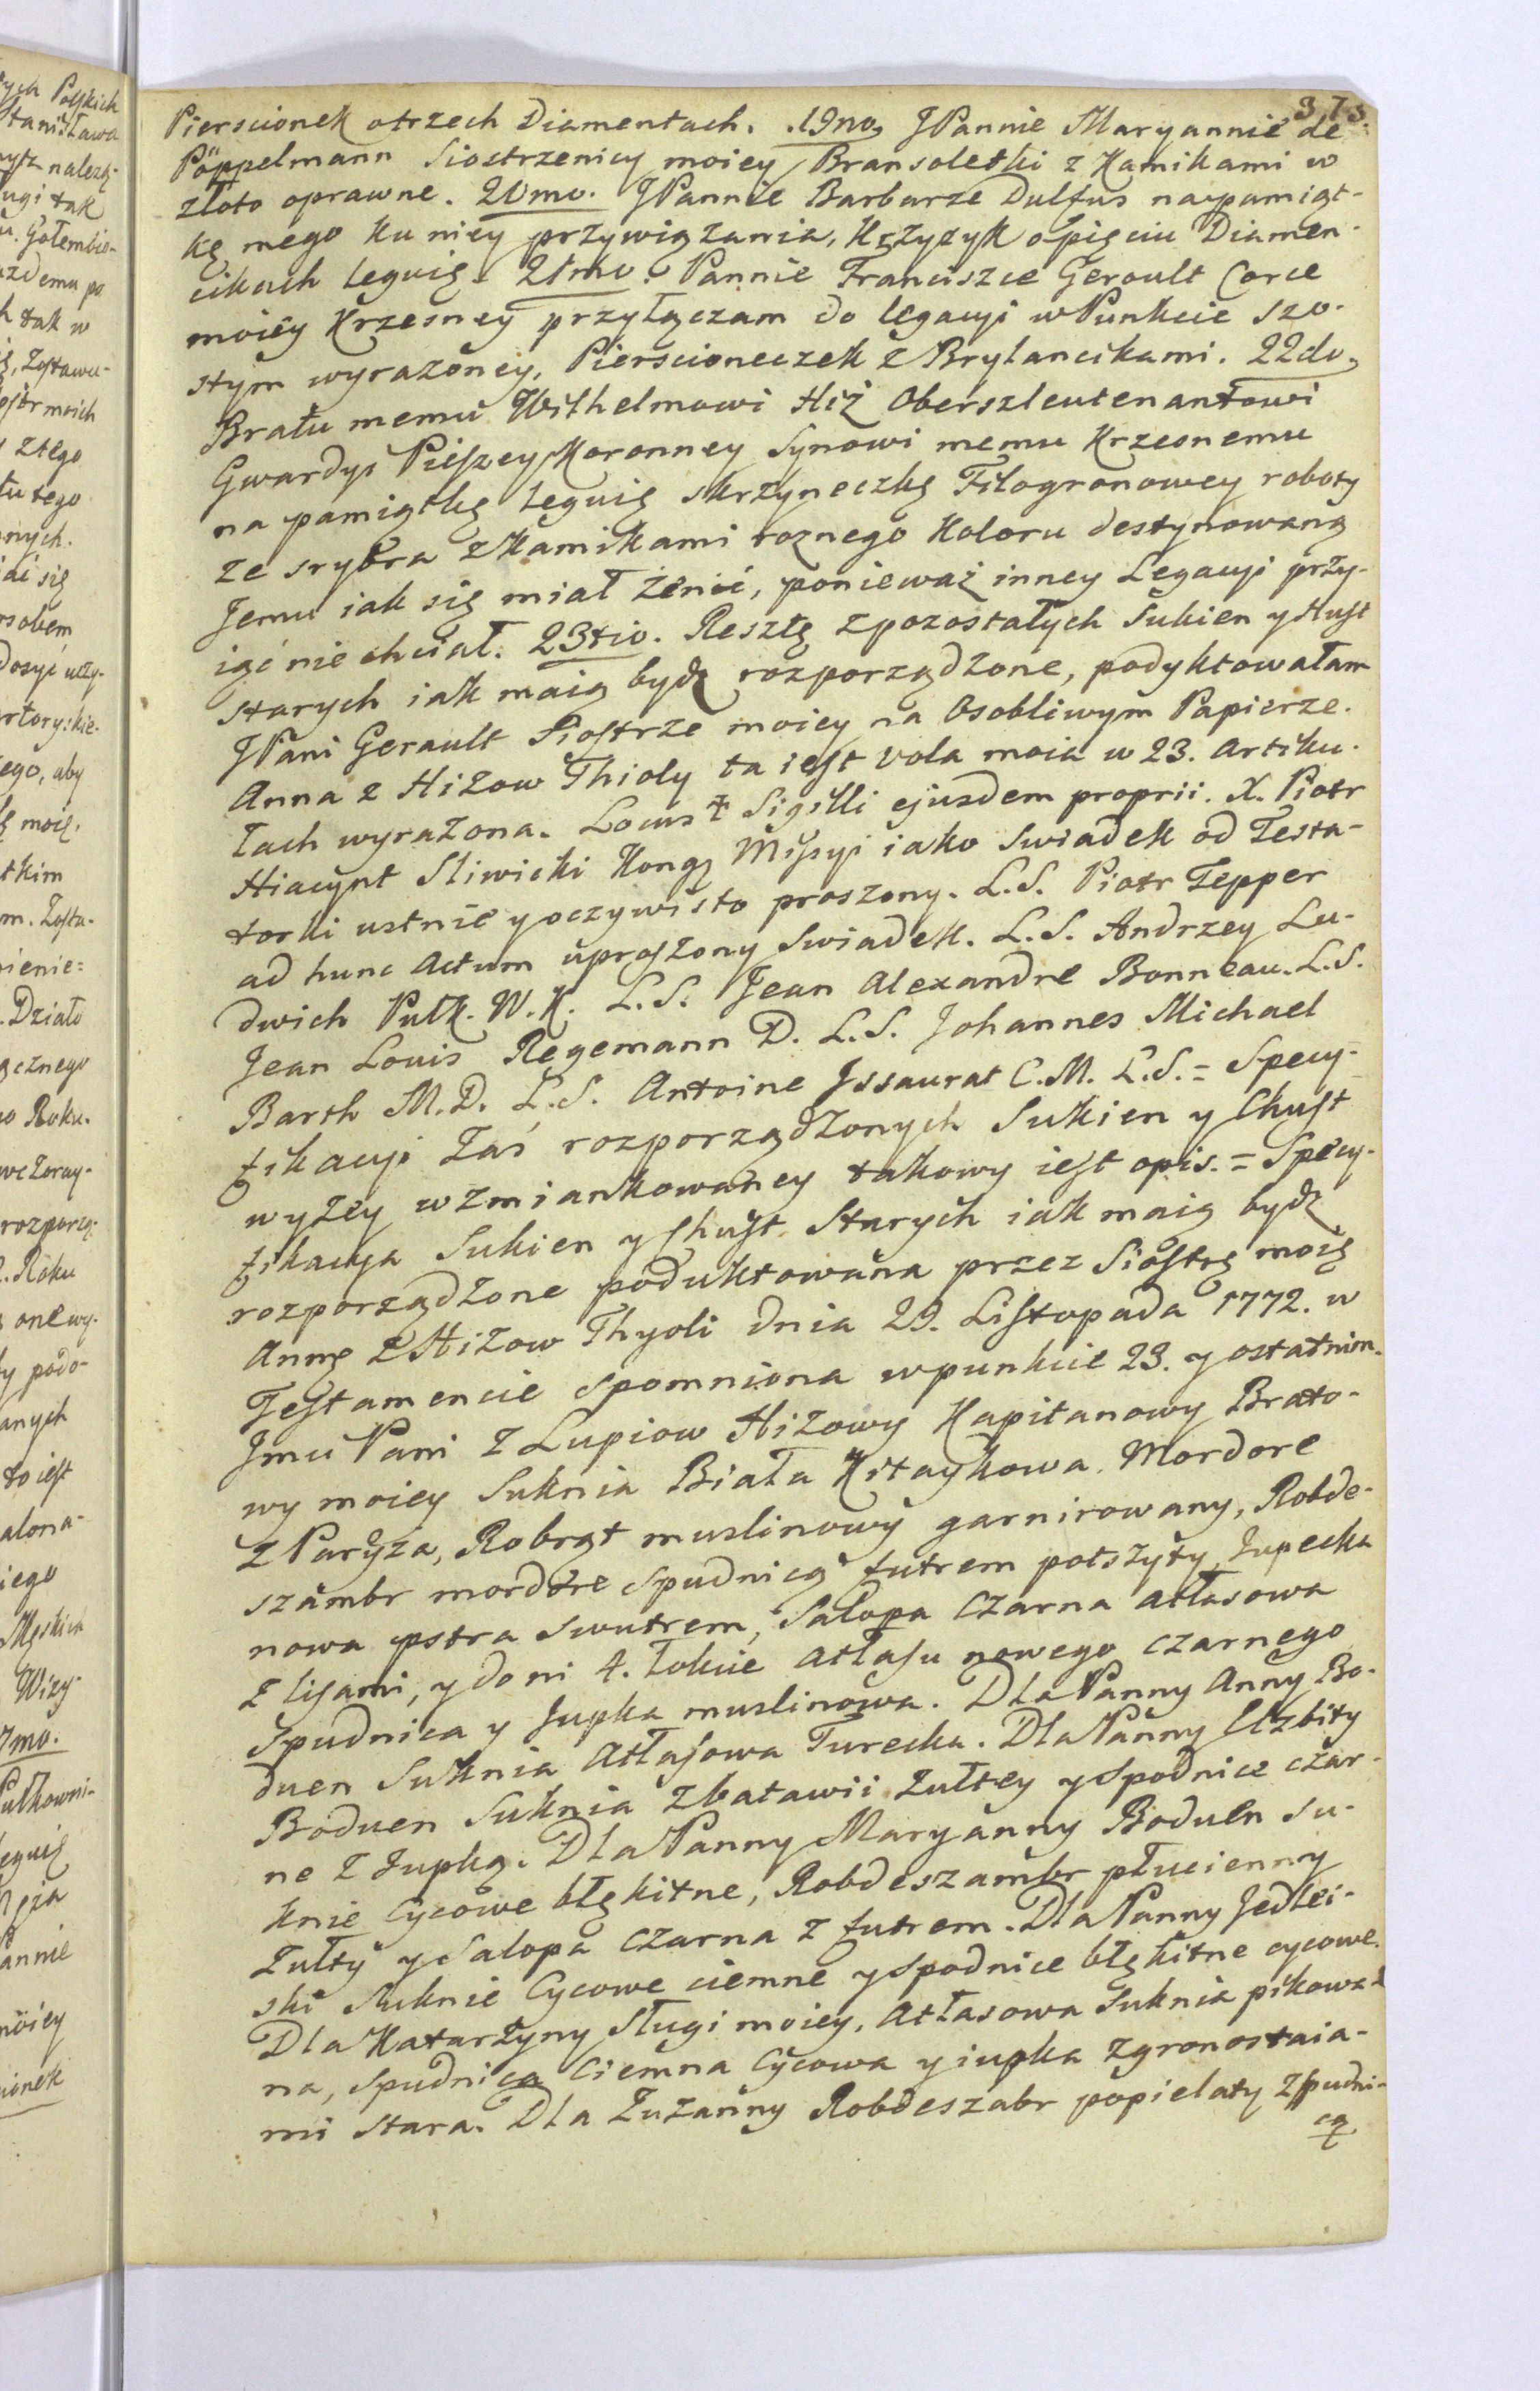 373.
Pierscionek otrzech Diamentach. 19no, JPannie Maryannie de
Pöppelmann Siostrzenicy moiey Bransoletki z Kamikami w
złoto oprawne. 20mo. JPannie Barbarze Dulfus na pamiąt-
kę mego ku niey przywiązania, Krzyżyk o pięciu Diamen-
cikach leguię. 21mo. Pannie Franciszce Gerault Corce
moiey Krzesney przyłączam do legacyi w Punkcie szo-
stym wyrażoney, Pierscioneczek z Brylancikami. 22do,
Bratu memu Wilhelmowi Hiż Oberszleutenantowi
Gwardyi Pieszey Koronney Synowi memu Krzesnemu
na pamiątkę leguię skrzyneczkę Filogronowey roboty
ze srybra z Kamikami roznego Koloru destynowaną
Jemu iak się miał żenić, ponieważ inney Legacyi przy-
iąć nie chciał. 23tio. Resztę z pozostałych Sukien y Hust
starych iak maią bydź rozporządzone, podyktowałam
JPani Gerault Siostrze moiey na Osobliwym Papierze.
Anna z Hiżow Thioly ta iest vola moia w 23. Artiku-
łach wyrażona. Locus + Sigilli ejusdem proprii. X. Piotr
Hiacynt Sliwicki Kong Missyi iako Swiadek od Testa-
torki ustnie y oczywisto proszony. L.S. Piotr Tepper
ad hunc Actum uproszony Swiadek. L.S. Andrzey Lu-
dwich Pułk. W.K. L.S. Jean Alexandre Bonneau. L.S.
Jean Louis Regemann D. L.S. Johannes Michael
Barth M.D. L.S. Antoine Issaurat C.M. L.S. = Specy-
fikacyi zaś rozporządzonych Sukien y Chust
wyżey wzmiankowaney takowy iest opis. = Specy-
fikacya Sukien y Chust Starych iak maią bydź
rozporządzone poduktowana przez Siostrę moię
Annę z Hiżow Thyoli dnia 29. Listopada 1772. w
Testamencie spomniona w punkcie 23. y ostatnim.
Jmu Pani z Lupiow Hiżowy Kapitanowy Brato-
wy moiey Suknia Biała Kitaykowa. Mordore
z Paryża, Robrąt muslinowy garnirowany, Robde-
szambr mordore spudnicą futrem potszyty, Jupecka
nowa pstra swutrem, Salopa Czarna atłasowa
z lisami, y do ni 4. łokcie atłasu nowego czarnego
Spudnica y Jupka muslinowa. Dla Panny Anny Bo-
duen Suknia Atłasowa Turecka. Dla Panny Elzbity
Boduen Suknia z batawii zułtey y Spodnice czar-
ne z Jupką. Dla Panny Maryanny Boduen Su-
knie Cycowe błękitne, Robdeszambr płucienny
zułty y Salopa czarna z futrem. Dla Panny Jedlei-
ski Suknie Cycowe ciemne y spodnice błękitne cycowe.
Dla Katarzyny Sługi moiey, Atłasowa Suknia pikowa-
na, Spudnica Ciemna Cycowa y iupka zgronostaia-
mi stara. Dla Zuzanny Robdeszabr popielaty z spudni-
cą